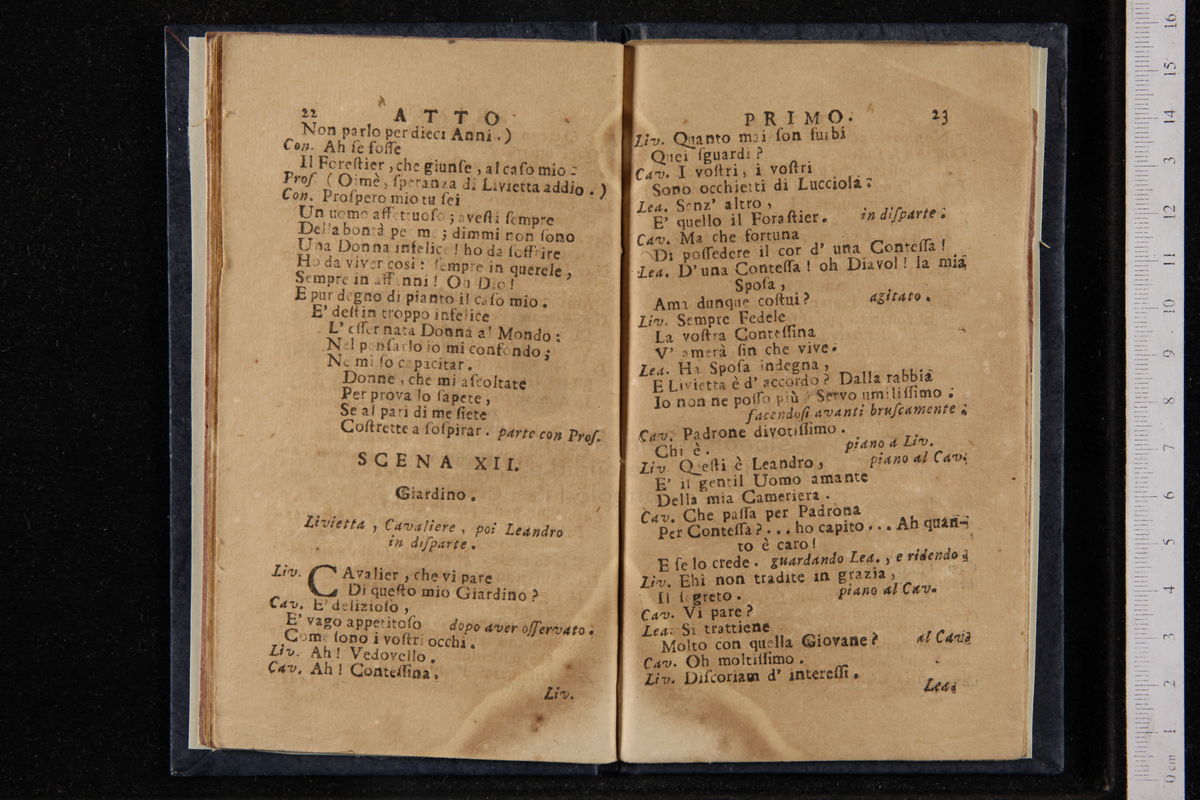 22 ATTO
Non parlo per dieci Anni.)
Con. Ah ſe foſſe
Il Foreſtier, che giunſe, al caſo mio:
Proſ. (Oimè, ſperanza di Livietta addio.)
Con. Proſpero mio tu ſei
Un uomo affettuoſo; aveſti ſempre
Della bontà per me; dimmi non ſono
Una Donna infelice! ho da ſoffrire
Ho da viver così: ſempre in querele,
Sempre in affanni! Oh Dio!
E pur degno di pianto il caſo mio.
E' deſtin troppo infelice
L' eſſer nata Donna al Mondo:
Nel penſarlo io mi confondo;
Ne mi ſo capacitar.
Donne, che mi aſcoltate
Per prova lo ſapete,
Se al pari di me ſiete
Coſtrette a ſoſpirar. parte con Proſ.
SCENA XII.
Giardino.
Livietta, Cavaliere, poi Leandro
in diſparte.
Liv. CAvalier, che vi pare
Di queſto mio Giardino?
Cav. E' delizioſo,
E' vago appetitoſo dopo aver oſſervato.
Come ſono i voſtri occhi.
Liv. Ah! Vedovello.
Cav. Ah! Conteſſina.
Liv.
PRIMO. 23
Liv. Quanto mai ſon furbi
Quei ſguardi?
Cav. I voſtri, i voſtri
Sono occhietti di Lucciola:
Lea. Senz' altro,
E' quello il Foraſtier. in diſparte.
Cav. Ma che fortuna
Di poſſedere il cor d' una Conteſſa!
Lea. D'una Conteſſa! oh Diavol! la mia
Spoſa,
Ama dunque coſtui? agitato.
Liv. Sempre Fedele
La voſtra Conteſſina
V' amerà ſin che vive.
Lea. Ha Spoſa indegna,
E Livietta è d' accordo? Dalla rabbia
Io non ne poſſo più! Servo umiliſſimo.
facendoſi avanti bruſcamente.
Cav. Padrone divotiſſimo.
Chi è. piano a Liv.
Liv. Queſti è Leandro, piano al Cav.
E' il gentil Uomo amante
Della mia Cameriera.
Cav. Che paſſa per Padrona
Per Conteſſa?... ho capito... Ah quan-
to è caro!
E ſe lo crede. guardando Lea., e ridendo.
Liv. Ehi non tradite in grazia,
Il ſegreto. piano al Cav.
Cav. Vi pare?
Lea. Si trattiene
Molto con quella Giovane? al Cav.
Cav. Oh moltiſſimo.
Liv. Diſcoriam d' intereſſi.
Lea.